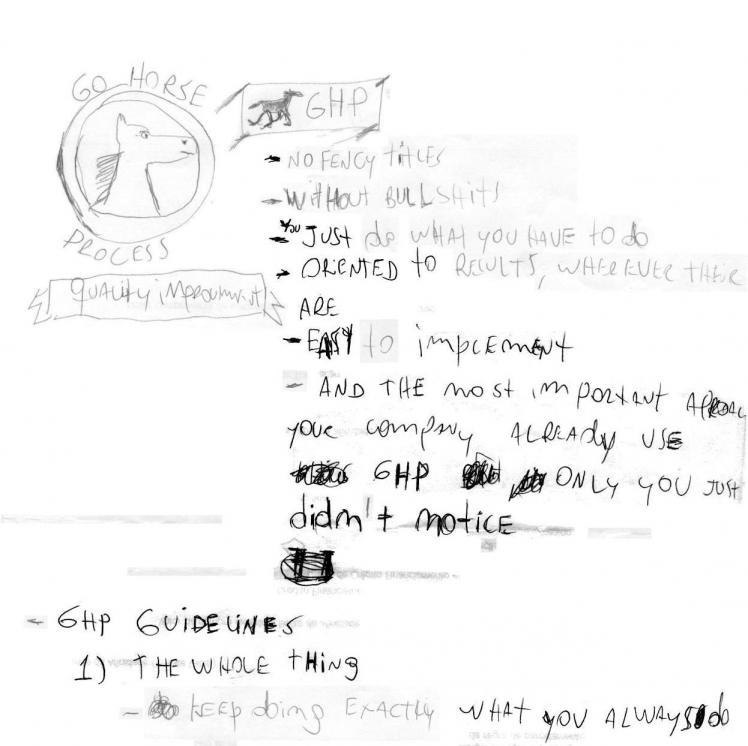 GO HORSE
PROCESS
QUALITY improvment
GHP
- NO FENCY titLES
- Without BULLShits
- You JUST do WHAT YOU HAVE to do
- ORIENTED to RESULTS, WHEREVER THEIR
ARE
- EASY to implement
- AND THE most important
your company ALREADY USE
GHP ONLY YOU JUST
didn't notice
- GHP GUIDELINES
1) THE WHOLE thing
- KEEP doing EXACTLY WHAT YOU ALWAYS do